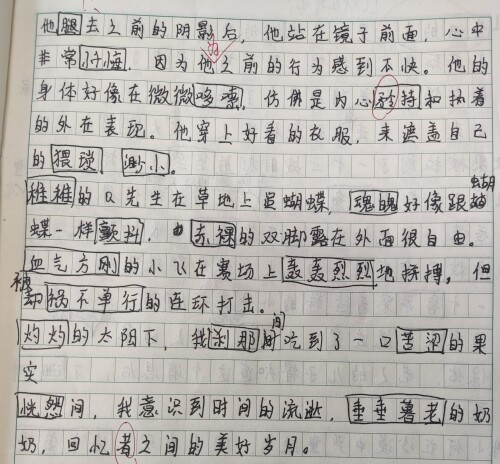 他腿去之前的阴影后，他站在镜子前面，心中
非常忏悔，因为他为之前的行为感到不快。他的
身体好像在微微哆嗦，仿佛是内心矜持和执着
的外在表现。他穿上好看的衣服，来遮盖自己
的猥琐，渺小。
稚稚的Q先生在草地上逗蝴蝶，魂魄好像跟蝴
蝶一样颤抖，赤裸的双脚露在外面很自由。
血气方刚的小飞在赛场上轰轰烈烈地拼搏，但
却被祸不单行的连环打击。
灼灼的太阳下，我刹那间吃到了一口苦涩的果
实
恍然间，我意识到时间的流逝，垂垂暮老的奶
奶，回忆者之间的美好岁月。